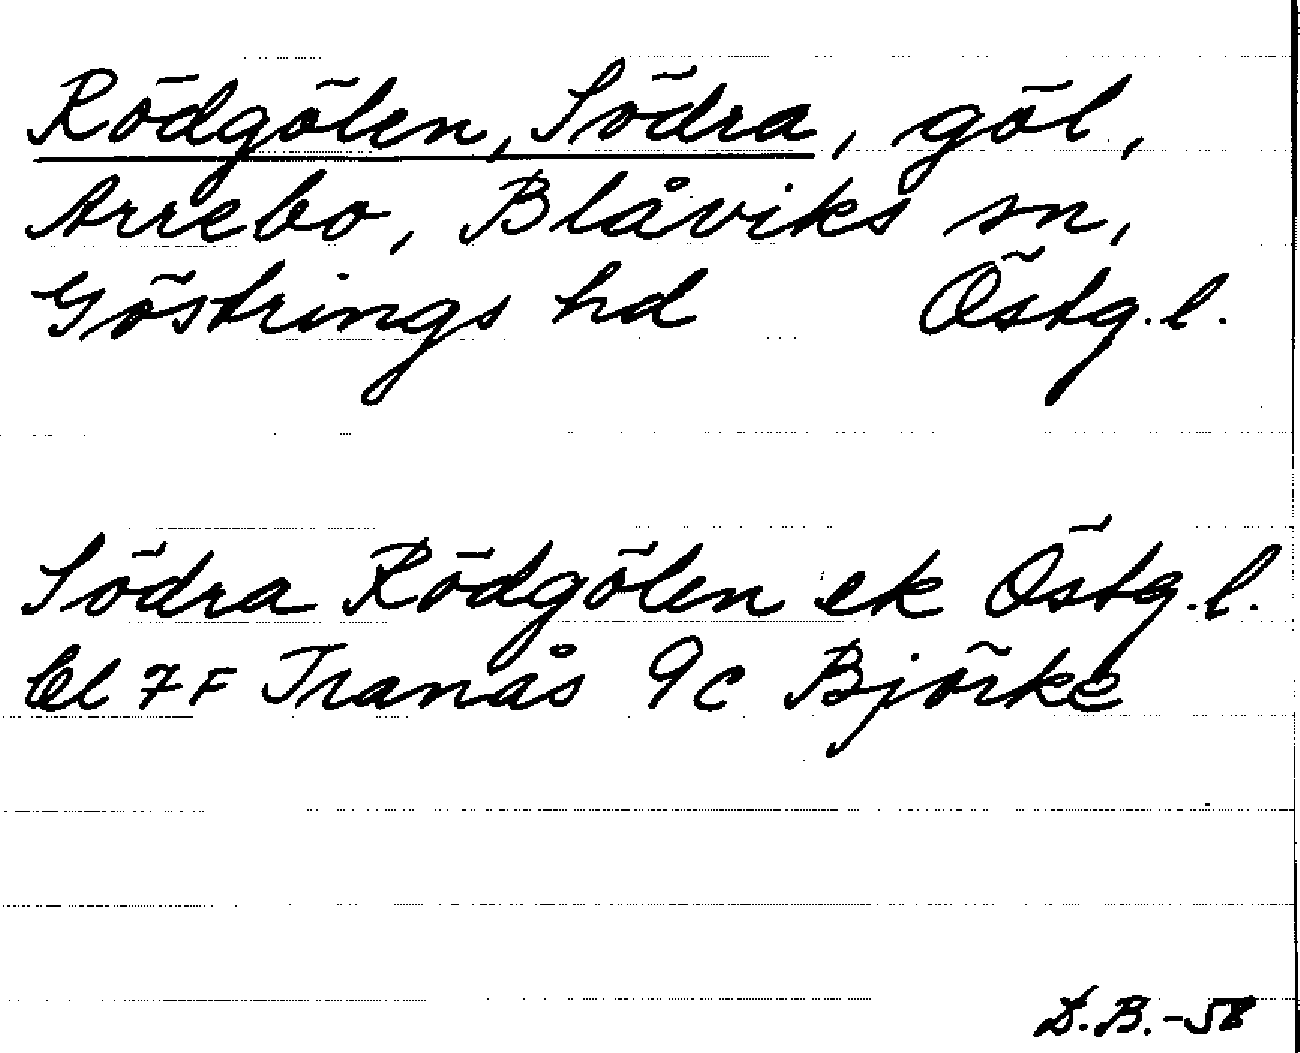 Rödgölen, Södra, göl,
Arrebo, Blåviks sn,
Göstrings hd Östg.l.
Södra Rödgölen ek Östg.l.
bl 7F Tranås 9c Björke
D.B.-58